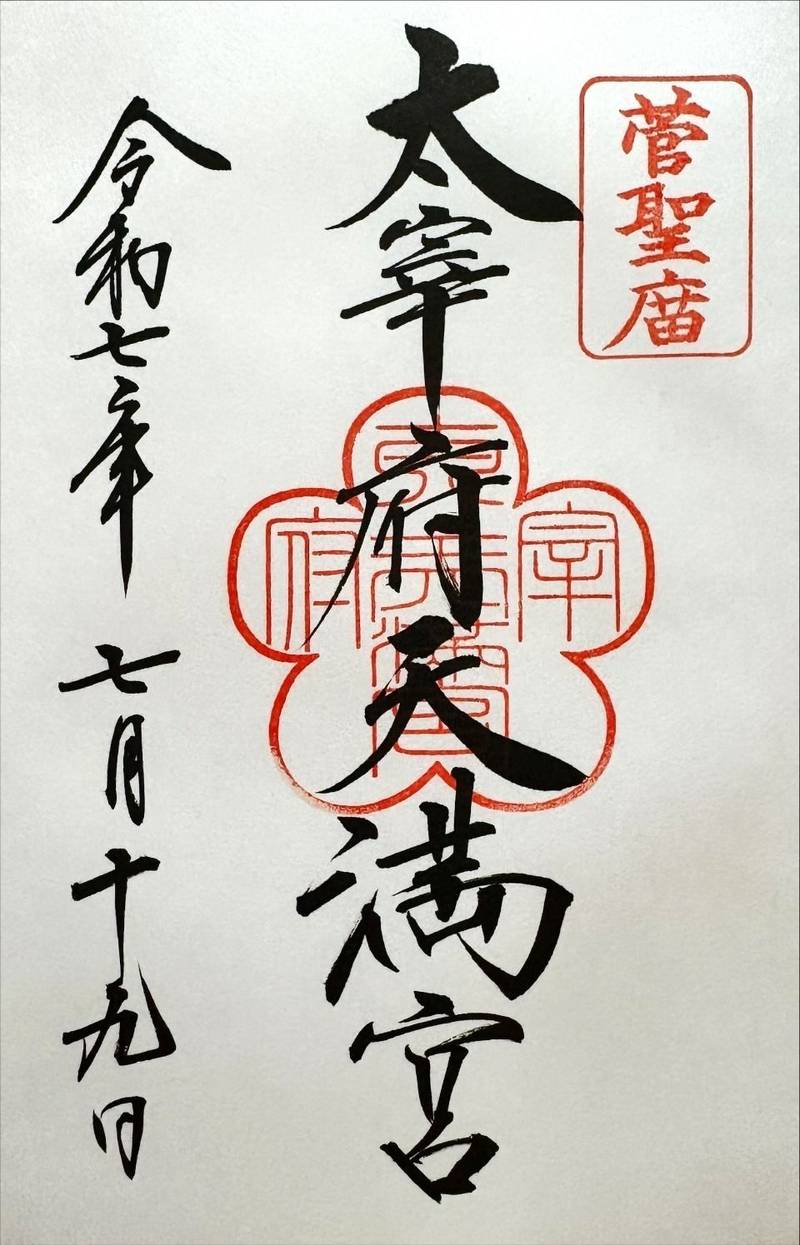 菅聖庿
太宰府天満宮
令和七年 七月十九日